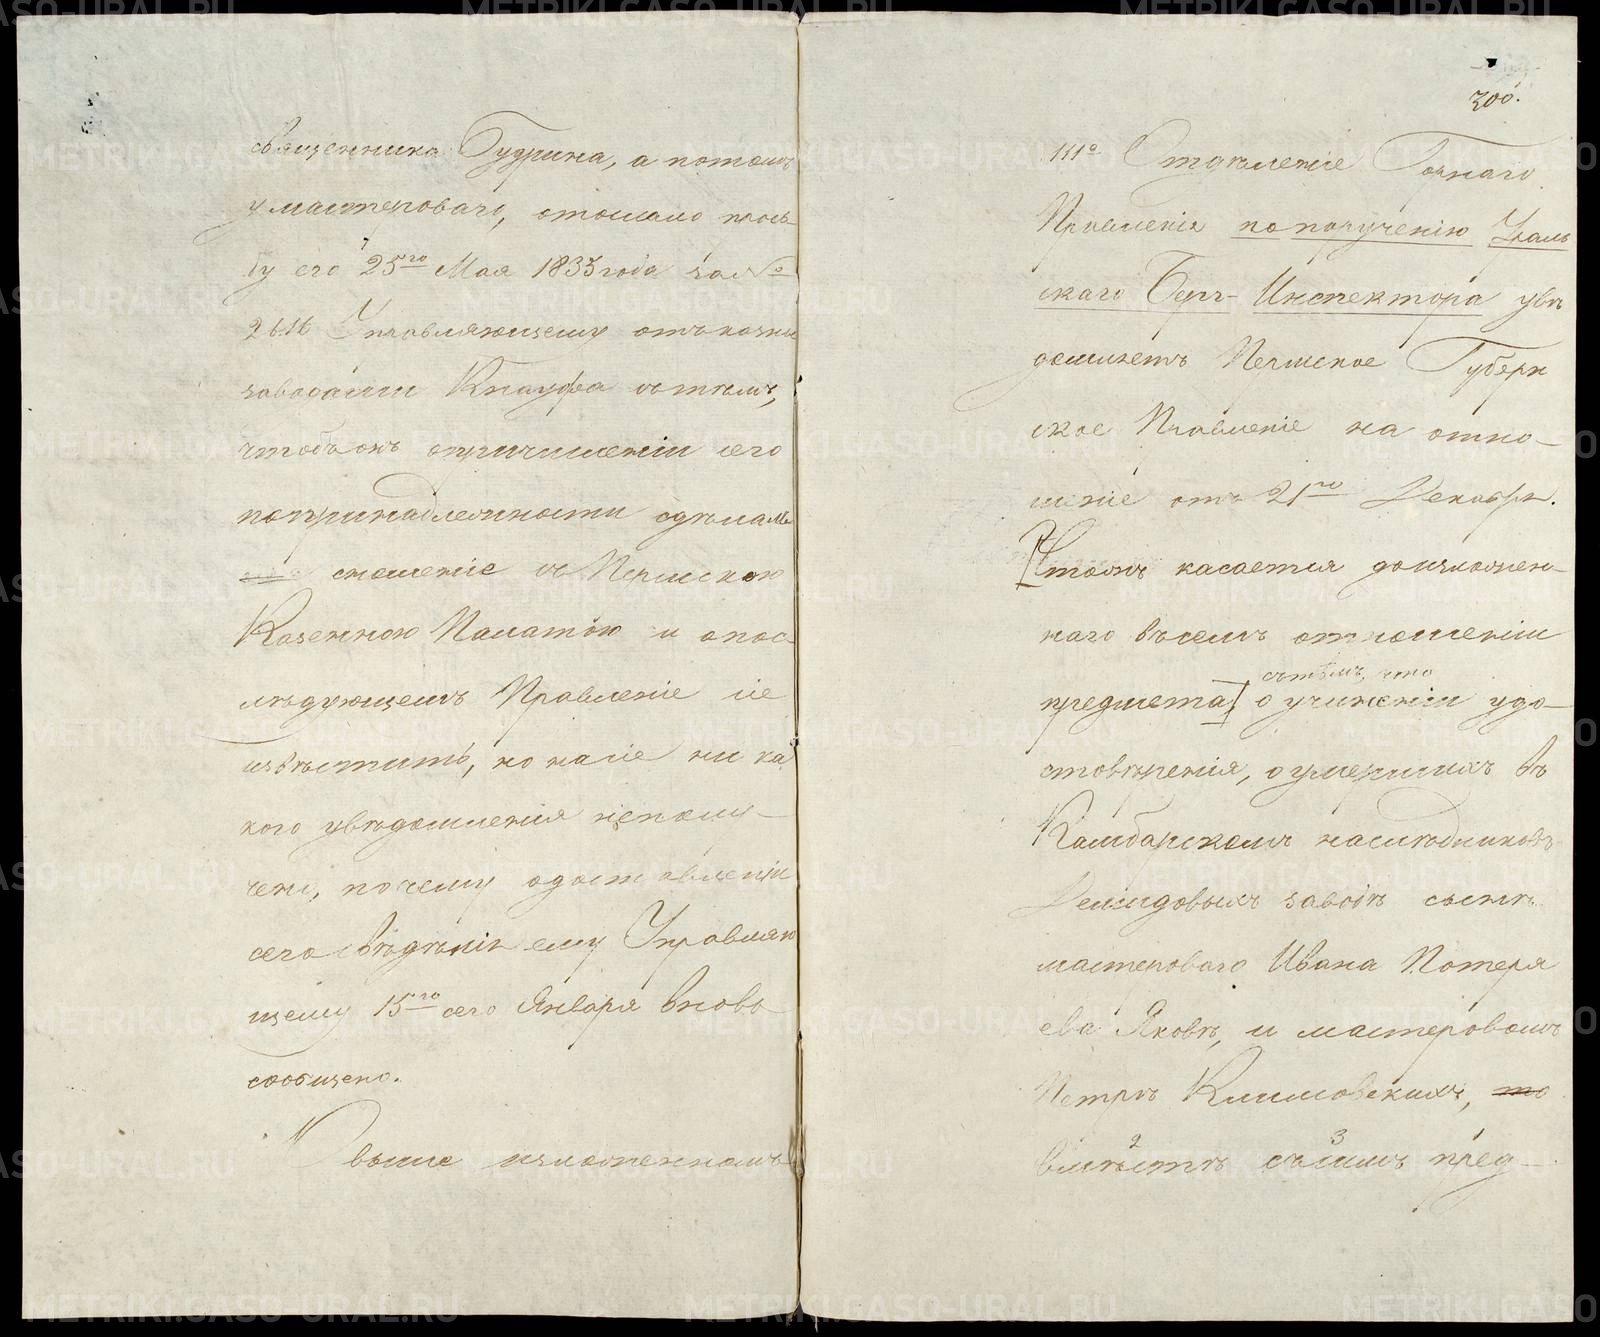 священника Гудрина, а потомъ
умастероваго, отослало прозь
бу его 25го Мая 1835 года за №
2616 Управляющему отъ казны
заводами Кнауфа съ тѣмъ,
чтобъ онъ опричисленіи сего
попринадлежности сдѣлалъ
сношеніе съ Пермскою
Казенною Палатою и опос
лѣдующемъ Правленіе сіе
извѣстить, но на сіе ни ка
кого увѣдомленія неполу-
чено, почему одоставленіи
сего свѣдѣнія ему Управляю
щему 15го сего Января вновь
сообщено.
О выше изложенномъ
300.
III е Отдѣленіе Горнаго
Правленія по порученію Ураль
скаго Бергъ-Инспектора увѣ
домляетъ Пермское Губерн
ское Правленіе на отно-
шеніе отъ 21го Декабря.
[Чтожъ касается до изложен-
наго въ семъ отношеніи
съ тѣмъ, что
предмета] о учиненіи удо-
стовѣренія, о умершихъ въ
Камбарскомъ наслѣдниковъ
Демидовыхъ заводѣ сынѣ
мастероваго Ивана Потеря
ева Яковѣ, и мастеровомъ
Петрѣ Климовскихъ, то
2 3 1
вмѣстѣ съ симъ пред-